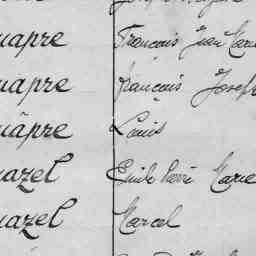 uapre François Jean Marie
uapre françois Joseph
uâpre Louis
uazel Emile Pierre Marie
uazel Marcel